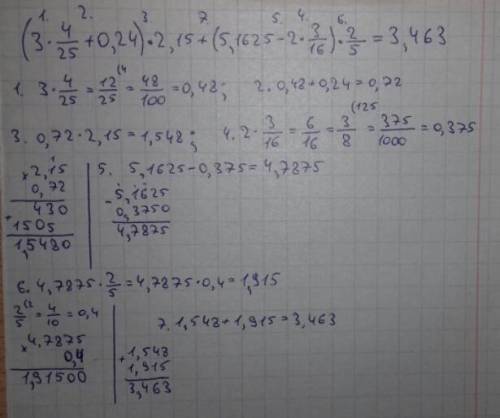 1. 2. 3. 7. 5. 4. 6.
(3·4/25+0,24)·2,15+(5,1625-2·3/16)·2/5=3,463
1. 3·4/25=12/25(4=48/100=0,48; 2. 0,48+0,24=0,72
3. 0,72·2,15=1,548; 4. 2·3/16=6/16=3/8(125=375/1000=0,375
×2,15
0,72
430
+1505
1,5480
5. 5,1625-0,375=4,7875
-5,1625
0,3750
4,7875
6. 4,7875·2/5=4,7875·0,4=1,915
2/5(2=4/10=0,4
×4,7875
0,4
1,91500
7. 1,548+1,915=3,463
+1,548
1,915
3,463